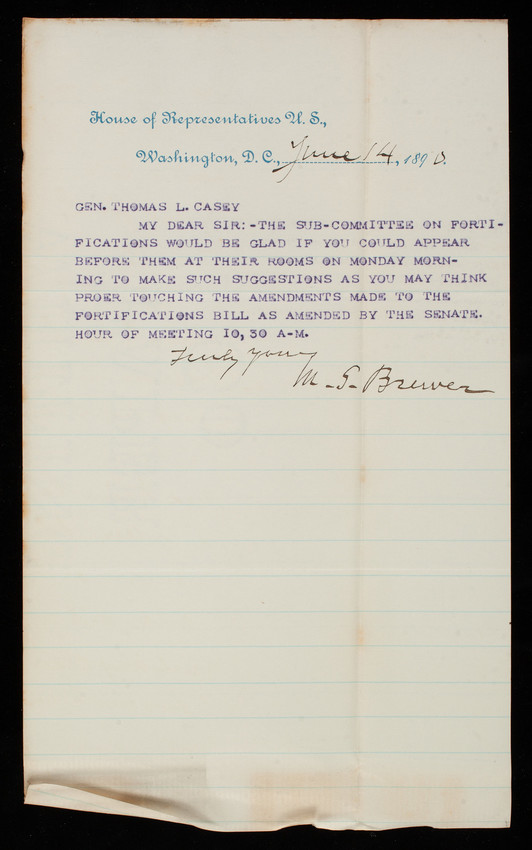 House of Representatives U. S.,
Washington, D. C., June 14, 1890.
GEN. THOMAS L. CASEY
MY DEAR SIR:-THE SUB-COMMITTEE ON FORTI-
FICATIONS WOULD BE GLAD IF YOU COULD APPEAR
BEFORE THEM AT THEIR ROOMS ON MONDAY MORN-
ING TO MAKE SUCH SUGGESTIONS AS YOU MAY THINK
PROER TOUCHING THE AMENDMENTS MADE TO THE
FORTIFICATIONS BILL AS AMENDED BY THE SENATE.
HOUR OF MEETING IO,30 A-M.
Truly yours
M. S. Brewer